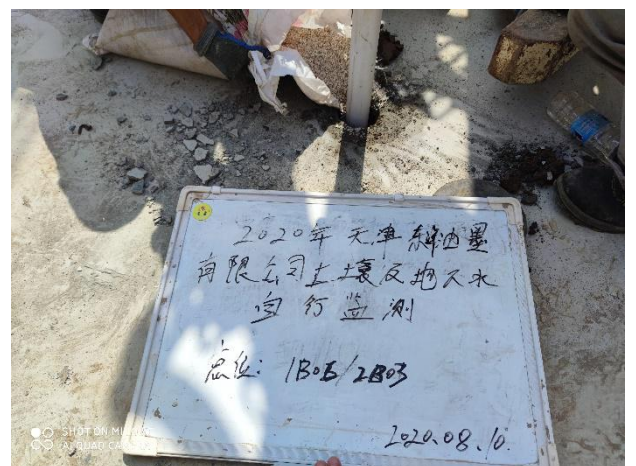 2020年 天津 油墨
有限公司土壤及地下水
自行监测
点位: 1B05/2B03
2020.08.10.
SHOT ON MI
AI QUAD CAMERA